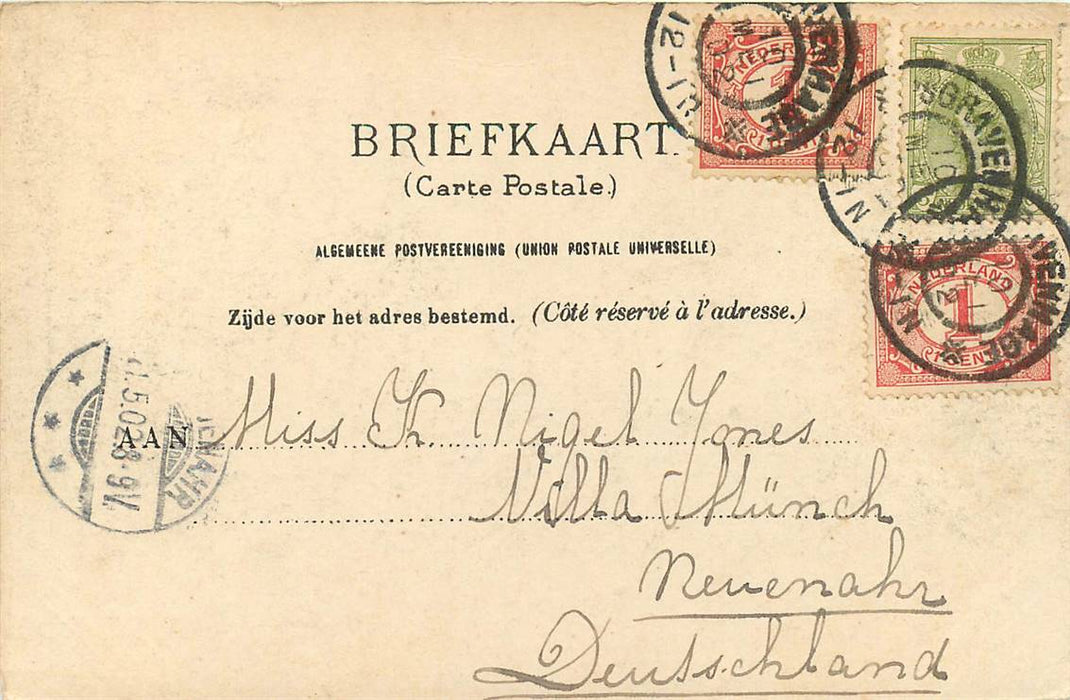 BRIEFKAART.
(Carte Postale.)
ALGEMEENE POSTVEREENIGING (UNION POSTALE UNIVERSELLE)
Zijde voor het adres bestemd. (Côté réservé à l'adresse.)
AAN Miss K. Nigel Jones
Villa Münch
Neuenahr
Deutschland
NEDERLAND
1
1 CENT
'SGRAVENHAGE
12-1N
NEDERLAND
1
1 CENT
1.5.02.8-9V.
ENAHR